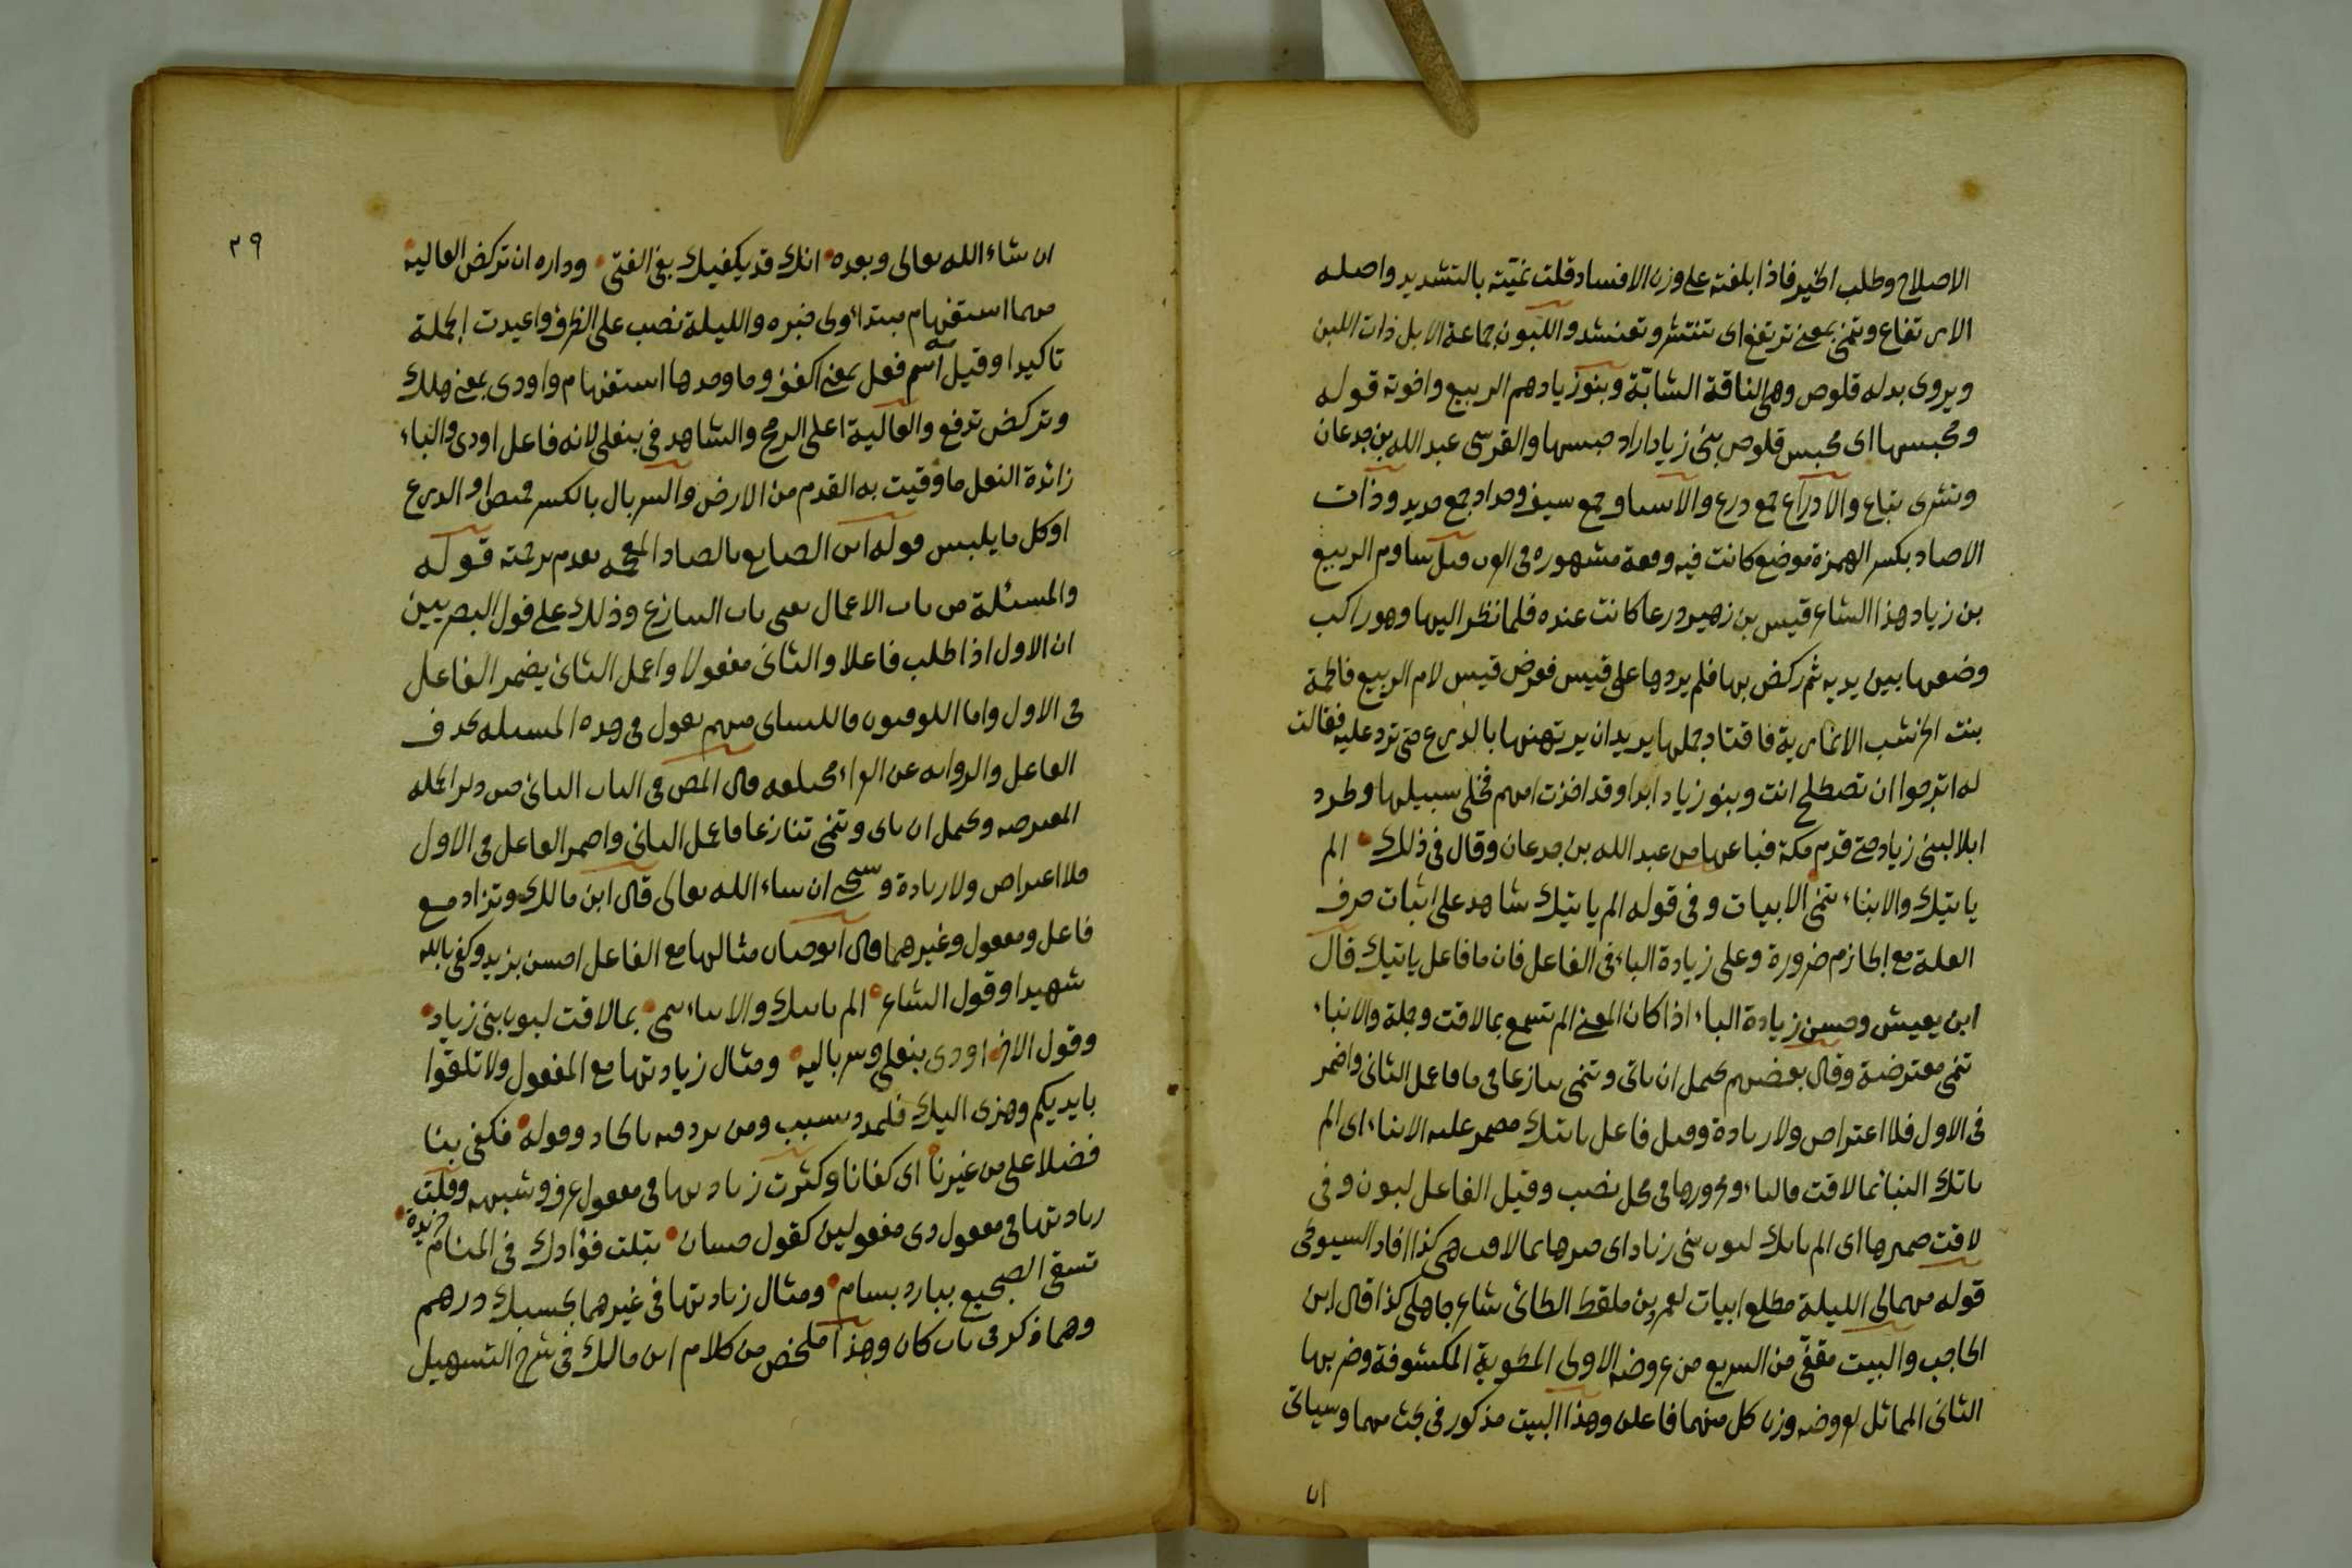 الاصلاح وطلب الخير فاذا بلغته على وزن الافساد قلت نميّته بالتشديد واصله
الارتفاع وتنمى بمعنى ترتفع اى تنتشر وتعنشد واللبون جماعة الابل ذات اللبن
ويروى بدله قلوص وهى الناقة الشابّة وبنو زياد هم الربيع واخوته قوله
ومحبسها اى محبس قلوص بنى زياد اراد حبسها والقرشى عبد الله بن جدعان
وتشرى تباع والادراع جمع درع والاسياف جمع سيف وحداد جمع حديد وذات
الاصاد بكسر الهمزة موضع كانت فيه وقعة مشهورة فى العرب قيل ساوم الربيع
بن زياد هذا الشاعر قيس بن زهير درعا كانت عنده فلما نظر اليها وهو راكب
وضعها بين يديه ثم ركض بها فلم يردها على قيس فعرض قيس لام الربيع فاطمة
بنت الخرشب الانمارية فاقتاد جملها يريد ان يرتهنها بالدرع حتى ترد عليه فقالت
له اترجوا ان تصطلح انت وبنو زياد ابدا وقد اخذت امهم فخلى سبيلها وطرد
ابلا لبنى زياد حتى قدم مكة فباعها من عبد الله بن جدعان وقال فى ذلك الم
ياتيك والانباء تنمى الابيات وفى قوله الم ياتيك شاهد على اثبات حرف
العلة مع الجازم ضرورة وعلى زيادة الباء فى الفاعل فان ما فاعل ياتيك قال
ابن يعيش وحسن زيادة الباء اذا كان المعنى الم تسمع بما لاقت وجملة والانباء
تنمى معترضة وقال بعضهم يحتمل ان ياتى وتنمى تنازعا فى ما فاعمل الثانى واضمر
فى الاول فلا اعتراض ولا زيادة وقيل فاعل ياتيك مضمر عليه الانباء اى الم
ياتك النبا بما لاقت فالباء ومجرورها فى محل نصب وقيل الفاعل لبون وفى
لاقت ضميرها اى الم ياتك لبون بنى زياد اى خبرها بما لاقت هى كذا افاد السيوطى
قوله مهما لى الليلة مطلع ابيات لعمرو بن ملقط الطائى شاعر جاهلى كذا قال ابن
الحاجب والبيت مقفّى من السريع من عروضه الاولى المطوية المكشوفة وضربها
الثانى المماثل لعروضه وزن كل منهما فاعلن وهذا البيت مذكور فى بحث مهما وسياتى
ان
٣٩
ان شاء الله تعالى وبعده انك قد يكفيك بغى الفتى ودراه ان تركض العاليه
مهما استفهام مبتدا ولى خبره والليلة نصب على الظرف واعيدت الجملة
تاكيدا وقيل مه اسم فعل بمعنى اكفف وما وحدها استفهام واودى بمعنى هلك
وتركض تدفع والعالية اعلى الرمح والشاهد فى بنعلى لانه فاعل اودى والباء
زائدة النعل ما وقيت به القدم من الارض والسربال بالكسر قميص او الدرع
او كل ما يلبس قوله ابن الصايع بالصاد المعجمه تقدم ترجمته قوله
والمسئلة من باب الاعمال يعنى باب التنازع وذلك على قول البصريين
ان الاول اذا طلب فاعلا والثانى مفعولا واعمل الثانى يضمر الفاعل
فى الاول واما الكوفيون فالكسائى منهم يقول فى هذه المسئله بحذف
الفاعل والروايه عن الفراء مختلفه قال المص فى الباب الثانى حين ذكر الجمله
المعترضه ويحتمل ان ياتى وتنمى تنازعا فاعمل الثانى واضمر الفاعل فى الاول
فلا اعتراض ولا زيادة وسيجى ان شاء الله تعالى قال ابن مالك وتزاد مع
فاعل ومفعول وغيرهما قال ابو حيان مثالها مع الفاعل احسن بزيد وكفى بالله
شهيدا وقول الشاعر الم ياتيك والانباء تنمى بما لاقت لبون بنى زياد
وقول الاخر اودى بنعلى وسرباليه ومثال زيادتها مع المفعول ولا تلقوا
بايديكم وهزى اليك فليمدد بسبب ومن يرد فيه بالحاد وقوله فكفى بنا
فضلا على من غيرنا اى كفانا وكثرت زيادتها فى مفعول عرف وشبهه وقلت
زيادتها فى مفعول ذى مفعولين كقول حسان تبلت فؤادك فى المنام خريدة
تسقى الضجيع ببارد بسام ومثال زيادتها فى غيرهما بحسبك درهم
وهما ذكر فى باب كان وهذا ملخص من كلام ابن مالك فى شرح التسهيل